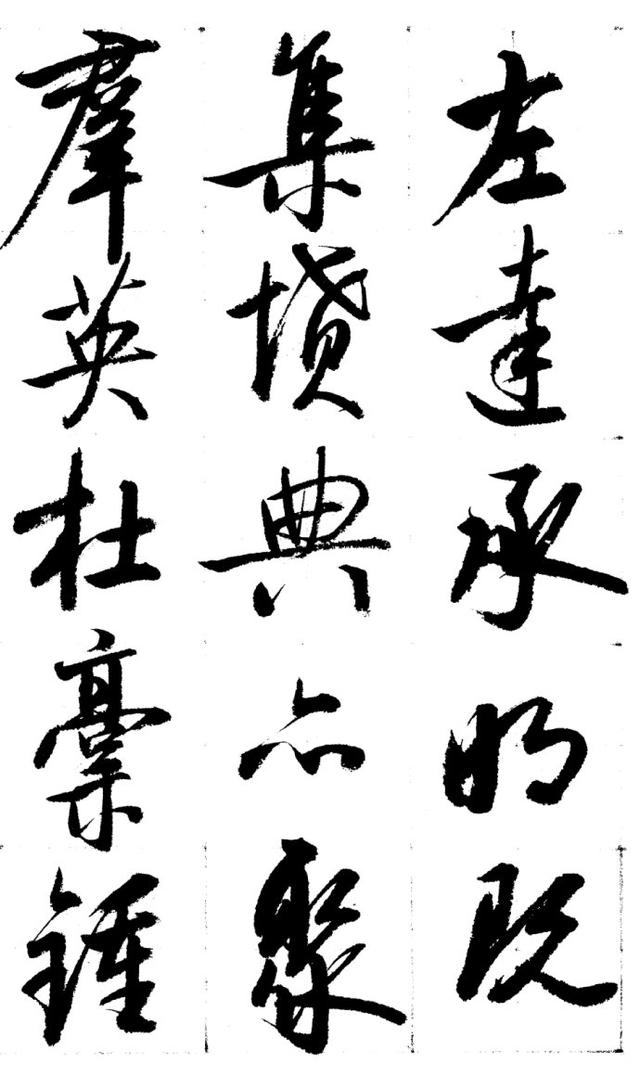 左達承明既
集墳典亦聚
羣英杜稾鍾